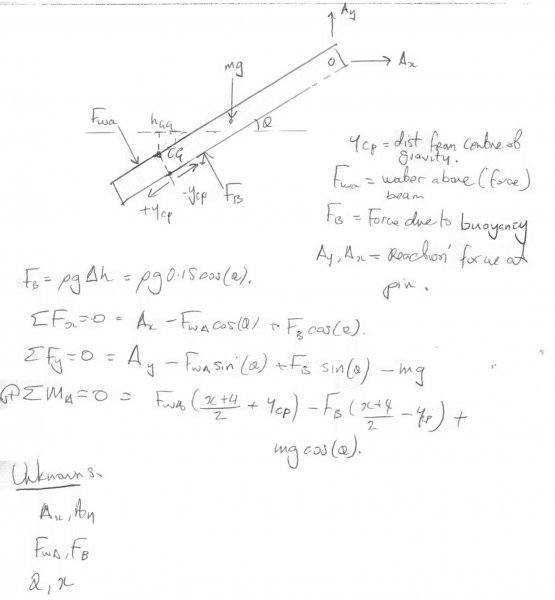 Ay
Ax
O
mg
FWA
hCG
CG
θ
-ycp
+ycp
FB
ycp = dist from centre of
gravity.
Fwa = water above (force)
beam
FB = Force due to buoyancy
Ay, Ax = Reaction force at
pin.
FB = ρgΔh = ρg0.15cos(θ).
ΣFx=0 = Ax - FWA cos(θ) + FB cos(θ).
ΣFy=0 = Ay - FWA sin(θ) + FB sin(θ) - mg
ΣMA=0 = FWA(x+4/2 + ycp) - FB(x+4/2 - ycp) +
mg cos(θ).
Unknowns.
Ax, Ay
FWA, FB
θ, x